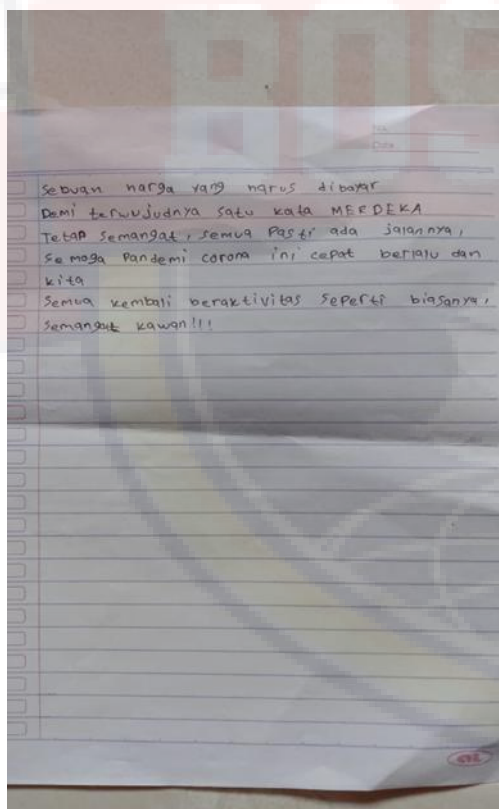 No.
Date
Sebuah harga yang harus dibayar
Demi terwujudnya satu kata MERDEKA
Tetap semangat, semua Pasti ada jalannya,
Semoga Pandemi corona ini cepat berlalu dan
kita
Semua kembali beraktivitas seperti biasanya,
Semangat kawan!!!